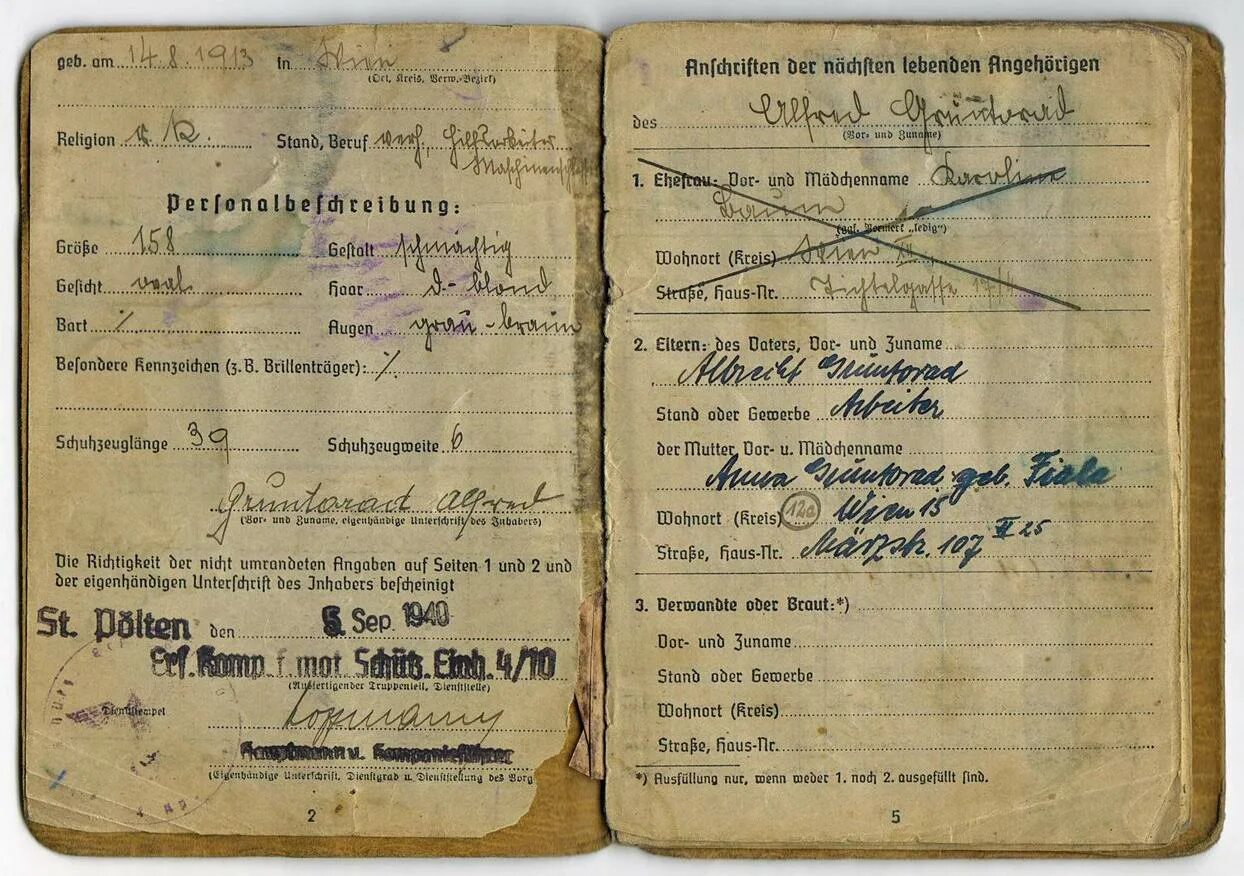 geb. am 14.8.1913 in Wien
(Ort, Kreis, Verw.-Bezirk)
Religion r. k. Stand, Beruf verh. Hilfsarbeiter
Personalbeschreibung:
Größe 158 Gestalt schmächtig
Gesicht oval Haar d.-blond
Bart ⁒ Augen grau-braun
Besondere Kennzeichen (z. B. Brillenträger): ⁒
Schuhzeuglänge 39 Schuhzeugweite 6
Gruntorad Alfred
(Vor- und Zuname, eigenhändige Unterschrift des Inhabers)
Die Richtigkeit der nicht umrandeten Angaben auf Seiten 1 und 2 und
der eigenhändigen Unterschrift des Inhabers bescheinigt
St. Pölten den 5. Sep. 1940
Ers. Komp. f. mot. Schütz. Einh. 4/10
(Ausfertigender Truppenteil, Dienststelle)
Dienststempel
Hauptmann u. Kompanieführer
(Eigenhändige Unterschrift, Dienstgrad u. Dienststellung des Vorg
2
Anschriften der nächsten lebenden Angehörigen
des Alfred Gruntorad
(Vor- und Zuname)
1. Ehefrau: Vor- und Mädchenname Karoline
Baum
(ggf. Vermerk „ledig")
Wohnort (Kreis) Wien XII
Straße, Haus-Nr. Tichtelgasse 17/4
2. Eltern: des Vaters, Vor- und Zuname
Albrecht Gruntorad
Stand oder Gewerbe Arbeiter
der Mutter, Vor- u. Mädchenname
Anna Gruntorad geb. Fiala
Wohnort (Kreis) 12a Wien 15
Straße, Haus-Nr. Märzstr. 107 II 25
3. Verwandte oder Braut:*)
Vor- und Zuname
Stand oder Gewerbe
Wohnort (Kreis)
Straße, Haus-Nr.
*) Ausfüllung nur, wenn weder 1. noch 2. ausgefüllt sind.
5